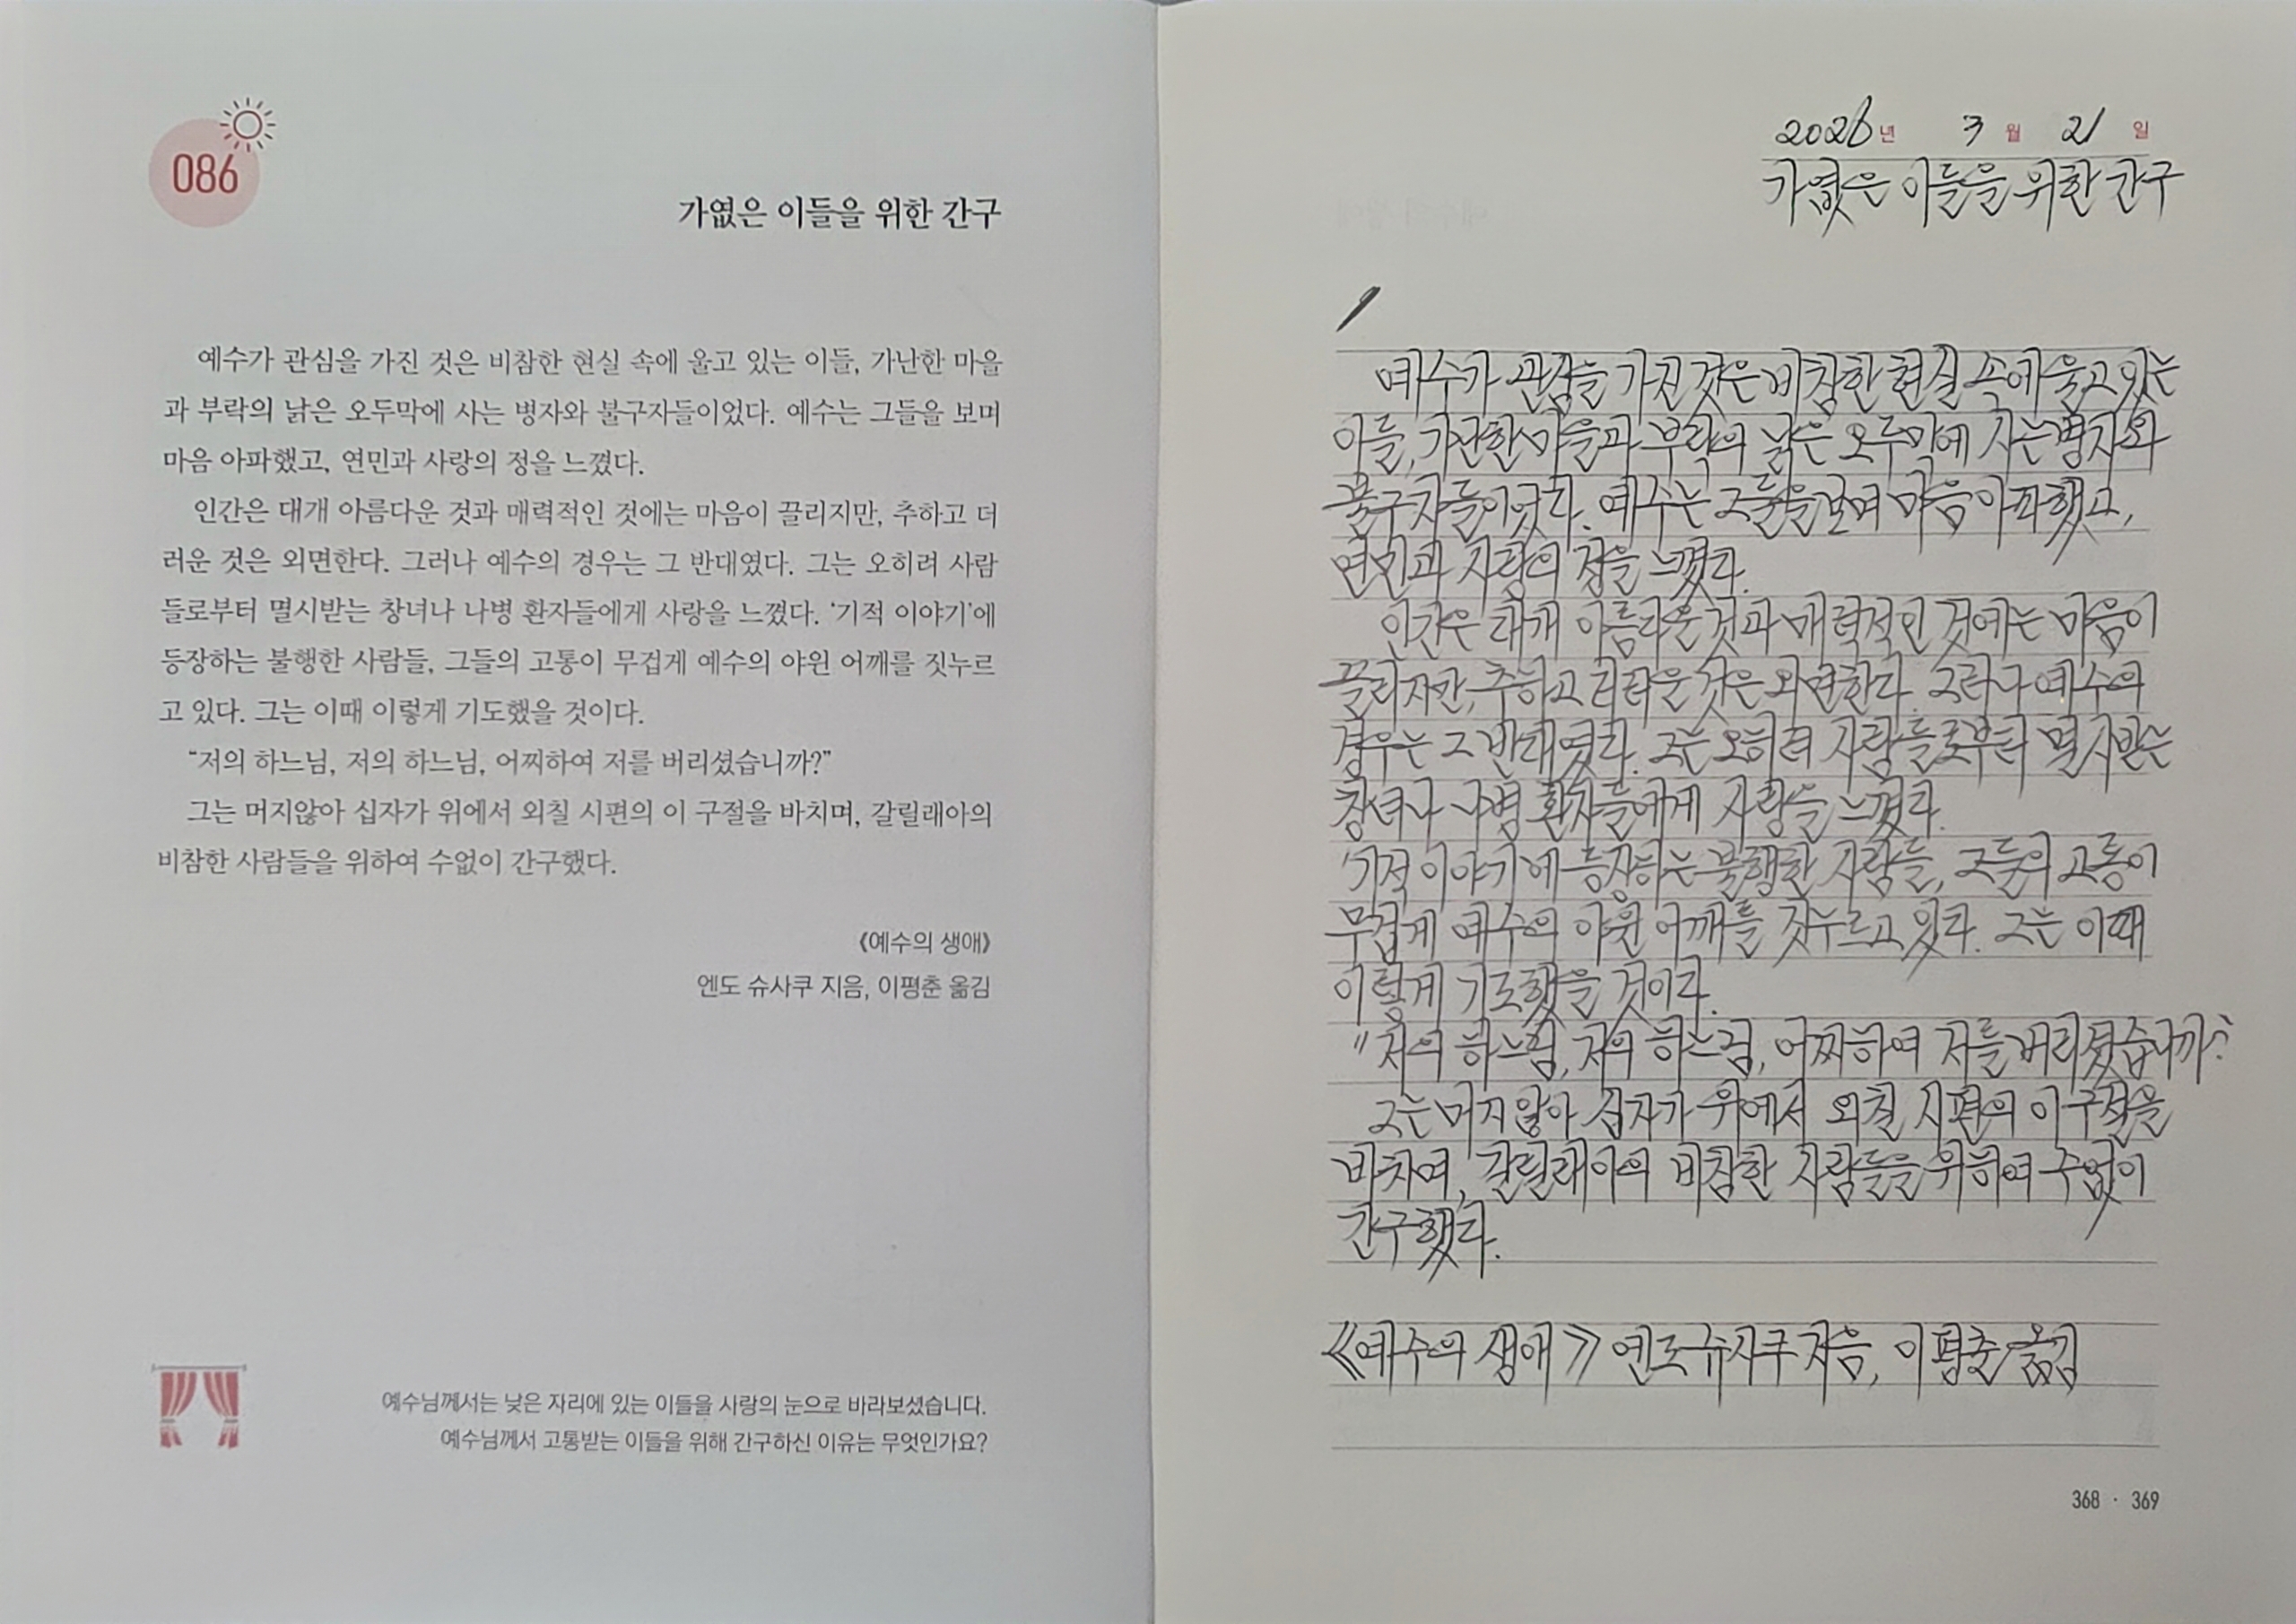 086
가엾은 이들을 위한 간구
예수가 관심을 가진 것은 비참한 현실 속에 울고 있는 이들, 가난한 마을
과 부락의 낡은 오두막에 사는 병자와 불구자들이었다. 예수는 그들을 보며
마음 아파했고, 연민과 사랑의 정을 느꼈다.
인간은 대개 아름다운 것과 매력적인 것에는 마음이 끌리지만, 추하고 더
러운 것은 외면한다. 그러나 예수의 경우는 그 반대였다. 그는 오히려 사람
들로부터 멸시받는 창녀나 나병 환자들에게 사랑을 느꼈다. ‘기적 이야기’에
등장하는 불행한 사람들, 그들의 고통이 무겁게 예수의 야윈 어깨를 짓누르
고 있다. 그는 이때 이렇게 기도했을 것이다.
“저의 하느님, 저의 하느님, 어찌하여 저를 버리셨습니까?”
그는 머지않아 십자가 위에서 외칠 시편의 이 구절을 바치며, 갈릴래아의
비참한 사람들을 위하여 수없이 간구했다.
《예수의 생애》
엔도 슈사쿠 지음, 이평춘 옮김
예수님께서는 낮은 자리에 있는 이들을 사랑의 눈으로 바라보셨습니다.
예수님께서 고통받는 이들을 위해 간구하신 이유는 무엇인가요?
2026년 3월 21일
가엾은 이들을 위한 간구
예수가 관심을 가진 것은 비참한 현실 속에 울고 있는
이들, 가난한 마을과 부락의 낡은 오두막에 사는 병자와
불구자들이었다. 예수는 그들을 보며 마음 아파했고,
연민과 사랑의 정을 느꼈다.
인간은 대개 아름다운 것과 매력적인 것에는 마음이
끌리지만, 추하고 더러운 것은 외면한다. 그러나 예수의
경우는 그 반대였다. 그는 오히려 사람들로부터 멸시받는
창녀나 나병 환자들에게 사랑을 느꼈다.
'기적 이야기에 등장하는 불행한 사람들, 그들의 고통이
무겁게 예수의 야윈 어깨를 짓누르고 있다. 그는 이때
이렇게 기도했을 것이다.
"저의 하느님, 저의 하느님, 어찌하여 저를 버리셨습니까?
그는 머지않아 십자가 위에서 외칠 시편의 이 구절을
바치며, 갈릴래아의 비참한 사람들을 위하여 수없이
간구했다.
《예수의 생애》 엔도 슈사쿠 지음, 이평춘 옮김
368 · 369